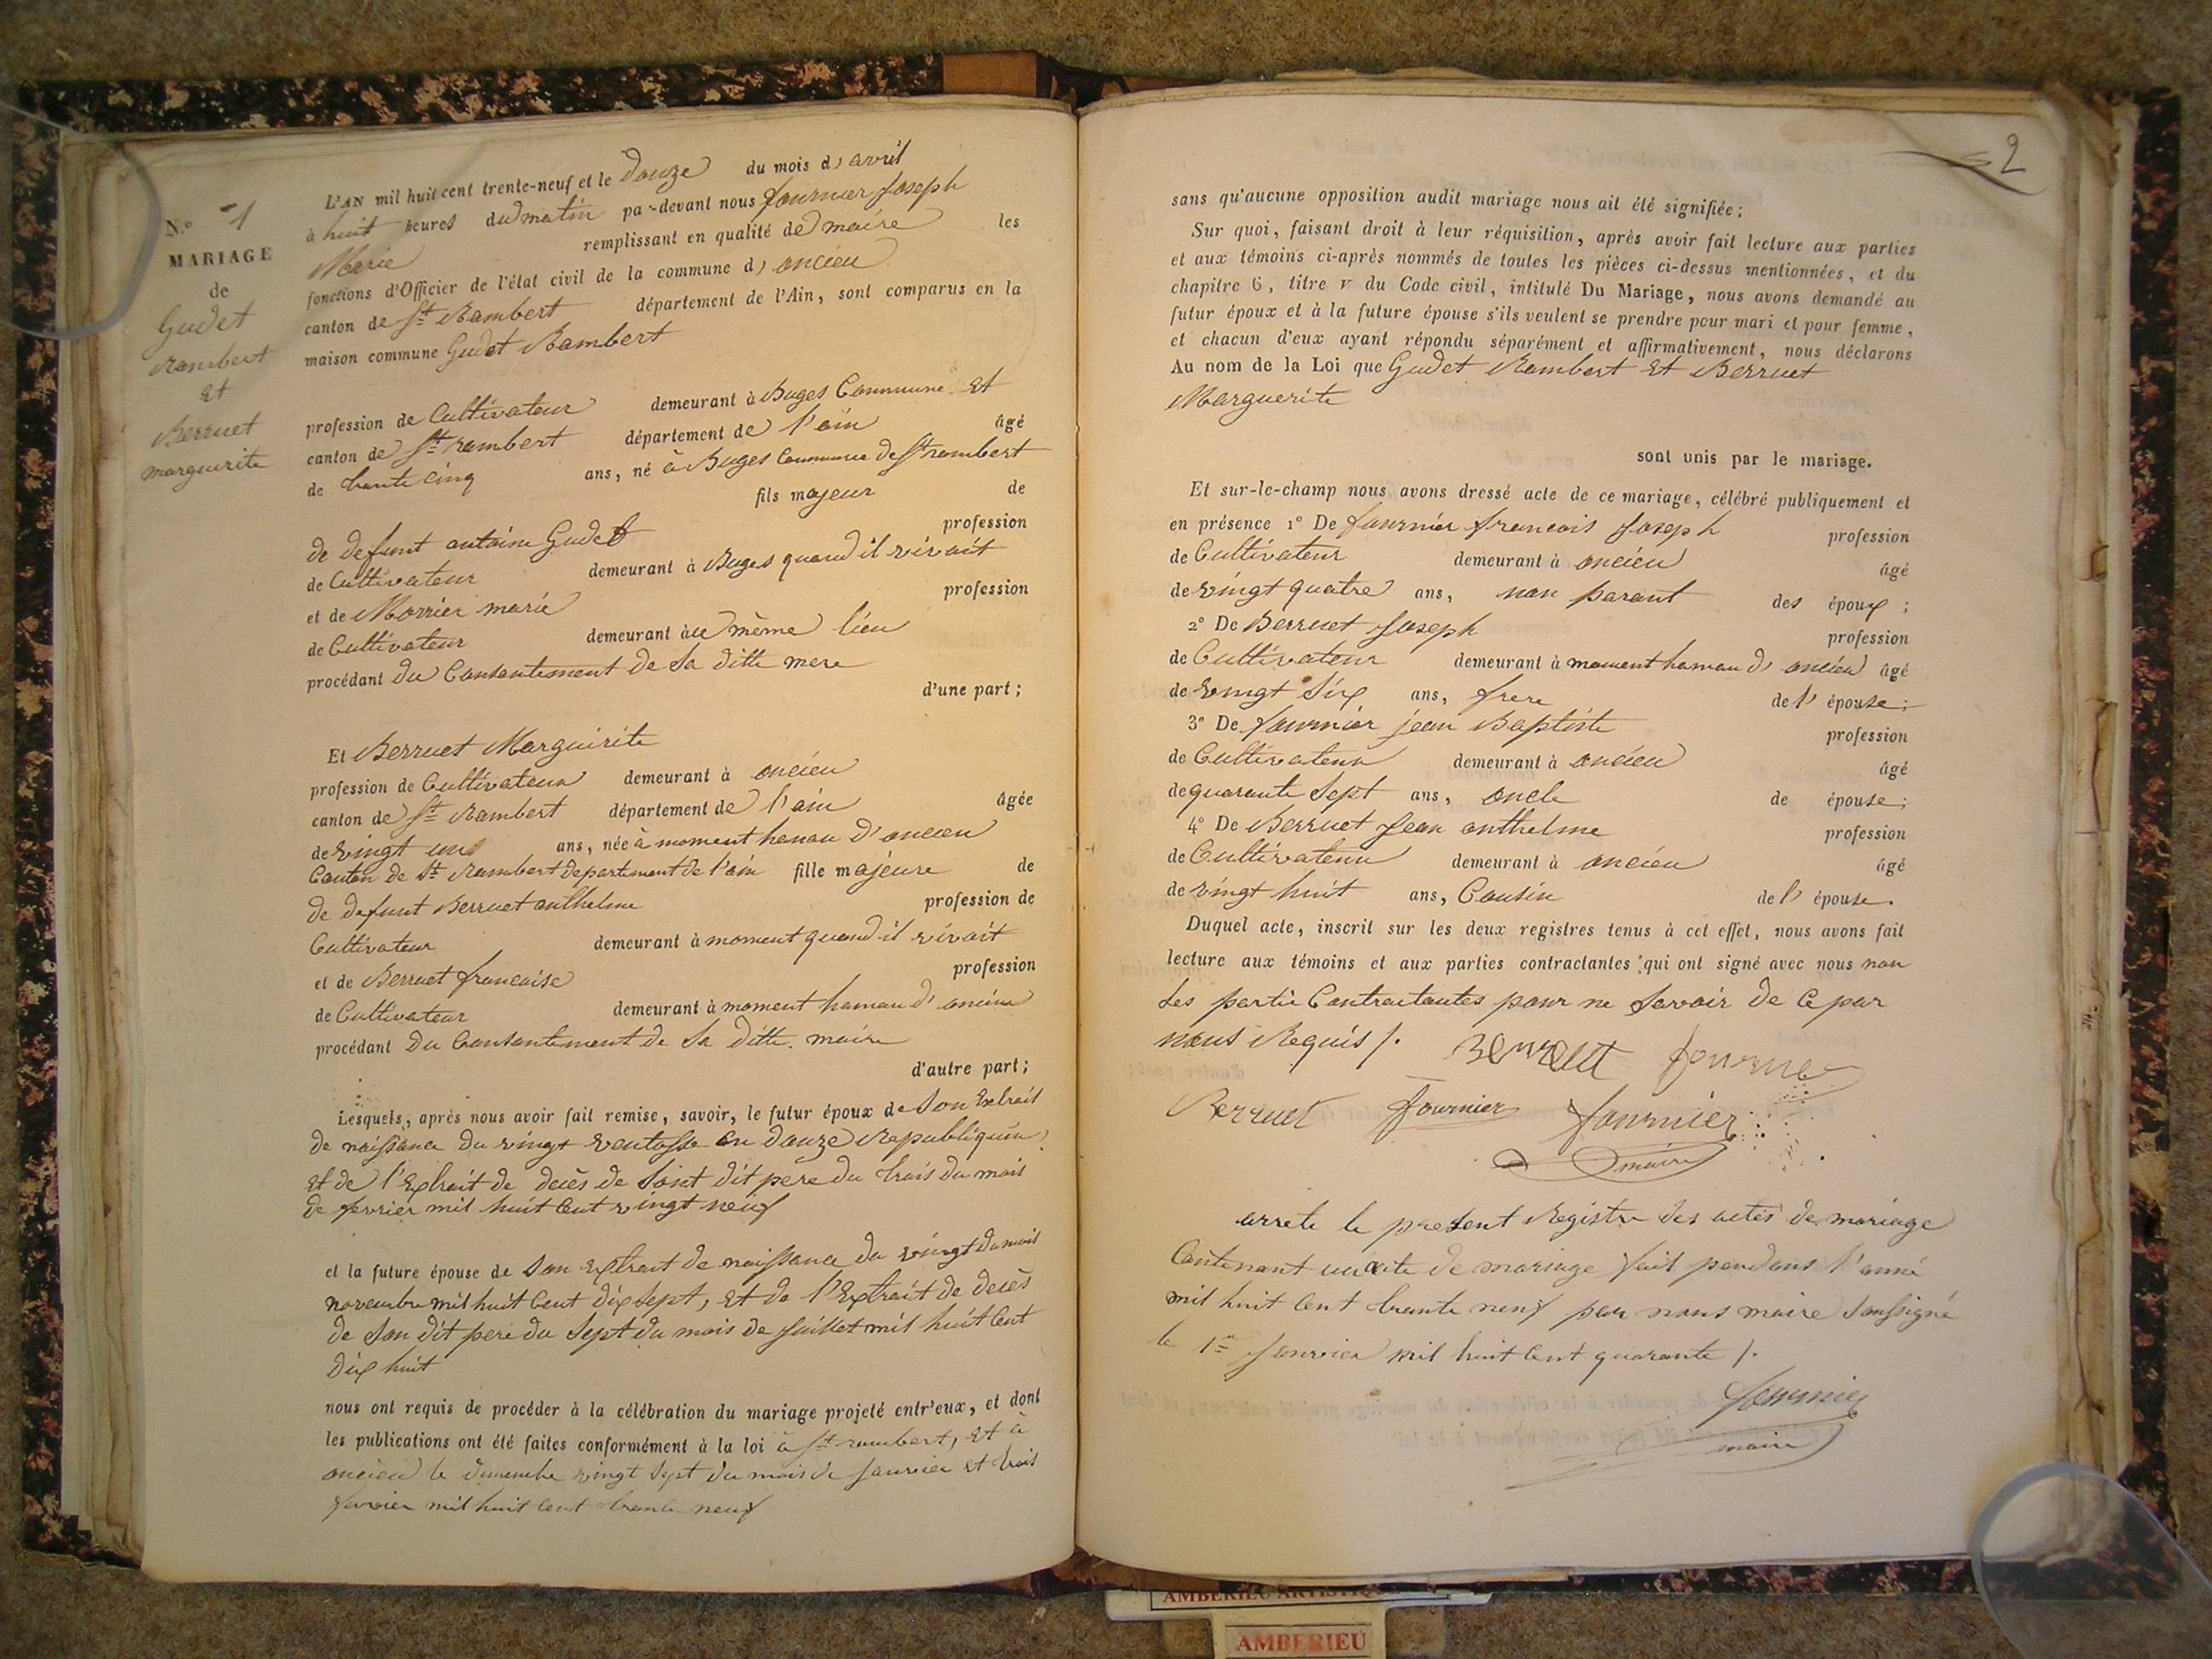 N.o 1
MARIAGE
de
Gudet
Rambert
et
Berruet
marguerite
L'AN mil huit cent trente-neuf et le Douze du mois d'avril
à huit heures du matin par-devant nous fournier Joseph
Marie remplissant en qualité de maire les
fonctions d'Officier de l'état civil de la commune d'oncieu
canton de St Rambert département de l'Ain, sont comparus en la
maison commune Gudet Rambert
profession de Cultivateur demeurant à Buges Commune et
canton de St rambert département de l'ain âgé
de trente cinq ans, né à Buges Commune de St rambert
fils majeur de
de defunt antoine Gudet profession
de Cultivateur demeurant à Buges quand il vivait
et de Morrier marie profession
de Cultivateur demeurant à ce même lieu
procédant du Consantement de sa ditte mere
d'une part;
Et Berruet Marguirite
profession de Cultivateur demeurant à oncieu
canton de St Rambert département de l'ain âgée
de vingt un ans, née à moment hamau d'oncieu
Canton de St Rambert departement de l'ain fille majeure de
de defunt Berruet anthelme profession de
Cultivateur demeurant à moment quand il vivait
et de Berruet francoise profession
de Cultivateur demeurant à moment hamau d'oncieu
procédant du Consantement de sa ditte. maire
d'autre part;
Lesquels, après nous avoir fait remise, savoir, le futur époux de son Extrait
de naissance du vingt ventosse an douze Republiquin,
et de l'Extrait de decès de soint dit père du trois du mois
de fevrier mil huit cent vingt neuf
et la future épouse de son Extrait de naissance du vingt du mois
novembre mil huit cent dix sept, et de l'Extrait de decès
de son dit pere du sept du mois de Juillet mil huit cent
dix huit
nous ont requis de procéder à la célébration du mariage projeté entr'eux, et dont
les publications ont été faites conformément à la loi à St rambert, et à
oncieu le dimenche vingt sept du mois de Janvier et trois
fevrier mil huit cent trente neuf
2
sans qu'aucune opposition audit mariage nous ait été signifiée;
Sur quoi, faisant droit à leur réquisition, après avoir fait lecture aux parties
et aux témoins ci-après nommés de toutes les pièces ci-dessus mentionnées, et du
chapitre 6, titre v du Code civil, intitulé Du Mariage, nous avons demandé au
futur époux et à la future épouse s'ils veulent se prendre pour mari et pour femme,
et chacun d'eux ayant répondu séparément et affirmativement, nous déclarons
Au nom de la Loi que Gudet Rambert et Berruet
Marguerite
sont unis par le mariage.
Et sur-le-champ nous avons dressé acte de ce mariage, célébré publiquement et
en présence 1o De fournier francois Joseph profession
de Cultivateur demeurant à oncieu âgé
de vingt quatre ans, non parant des époux;
2o De Berruet Joseph profession
de Cultivateur demeurant à moment hamau d'oncieu âgé
de vingt six ans, frere de l'épouse;
3o De fournier jean Baptiste profession
de Cultivateur demeurant à oncieu âgé
de quarante sept ans, oncle de épouse;
4o De Berruet Jean anthelme profession
de Cultivateur demeurant à oncieu âgé
de vingt huit ans, Cousin de l'épouse.
Duquel acte, inscrit sur les deux registres tenus à cet effet, nous avons fait
lecture aux témoins et aux parties contractantes qui ont signé avec nous non
les partie Contractantes pour ne savoir de ce par
nous Requis /. Berruet fournier
Berruet fournier fournier
maire
arrete le present Registre des actes de mariage
Contenant un acte de mariage fait pendans l'anné
mil huit cent trente neuf par nous maire soussigné
le 1er Janvier mil huit cent quarante /.
fournier
maire
AMBERIEU ARTISTIQUE
AMBERIEU